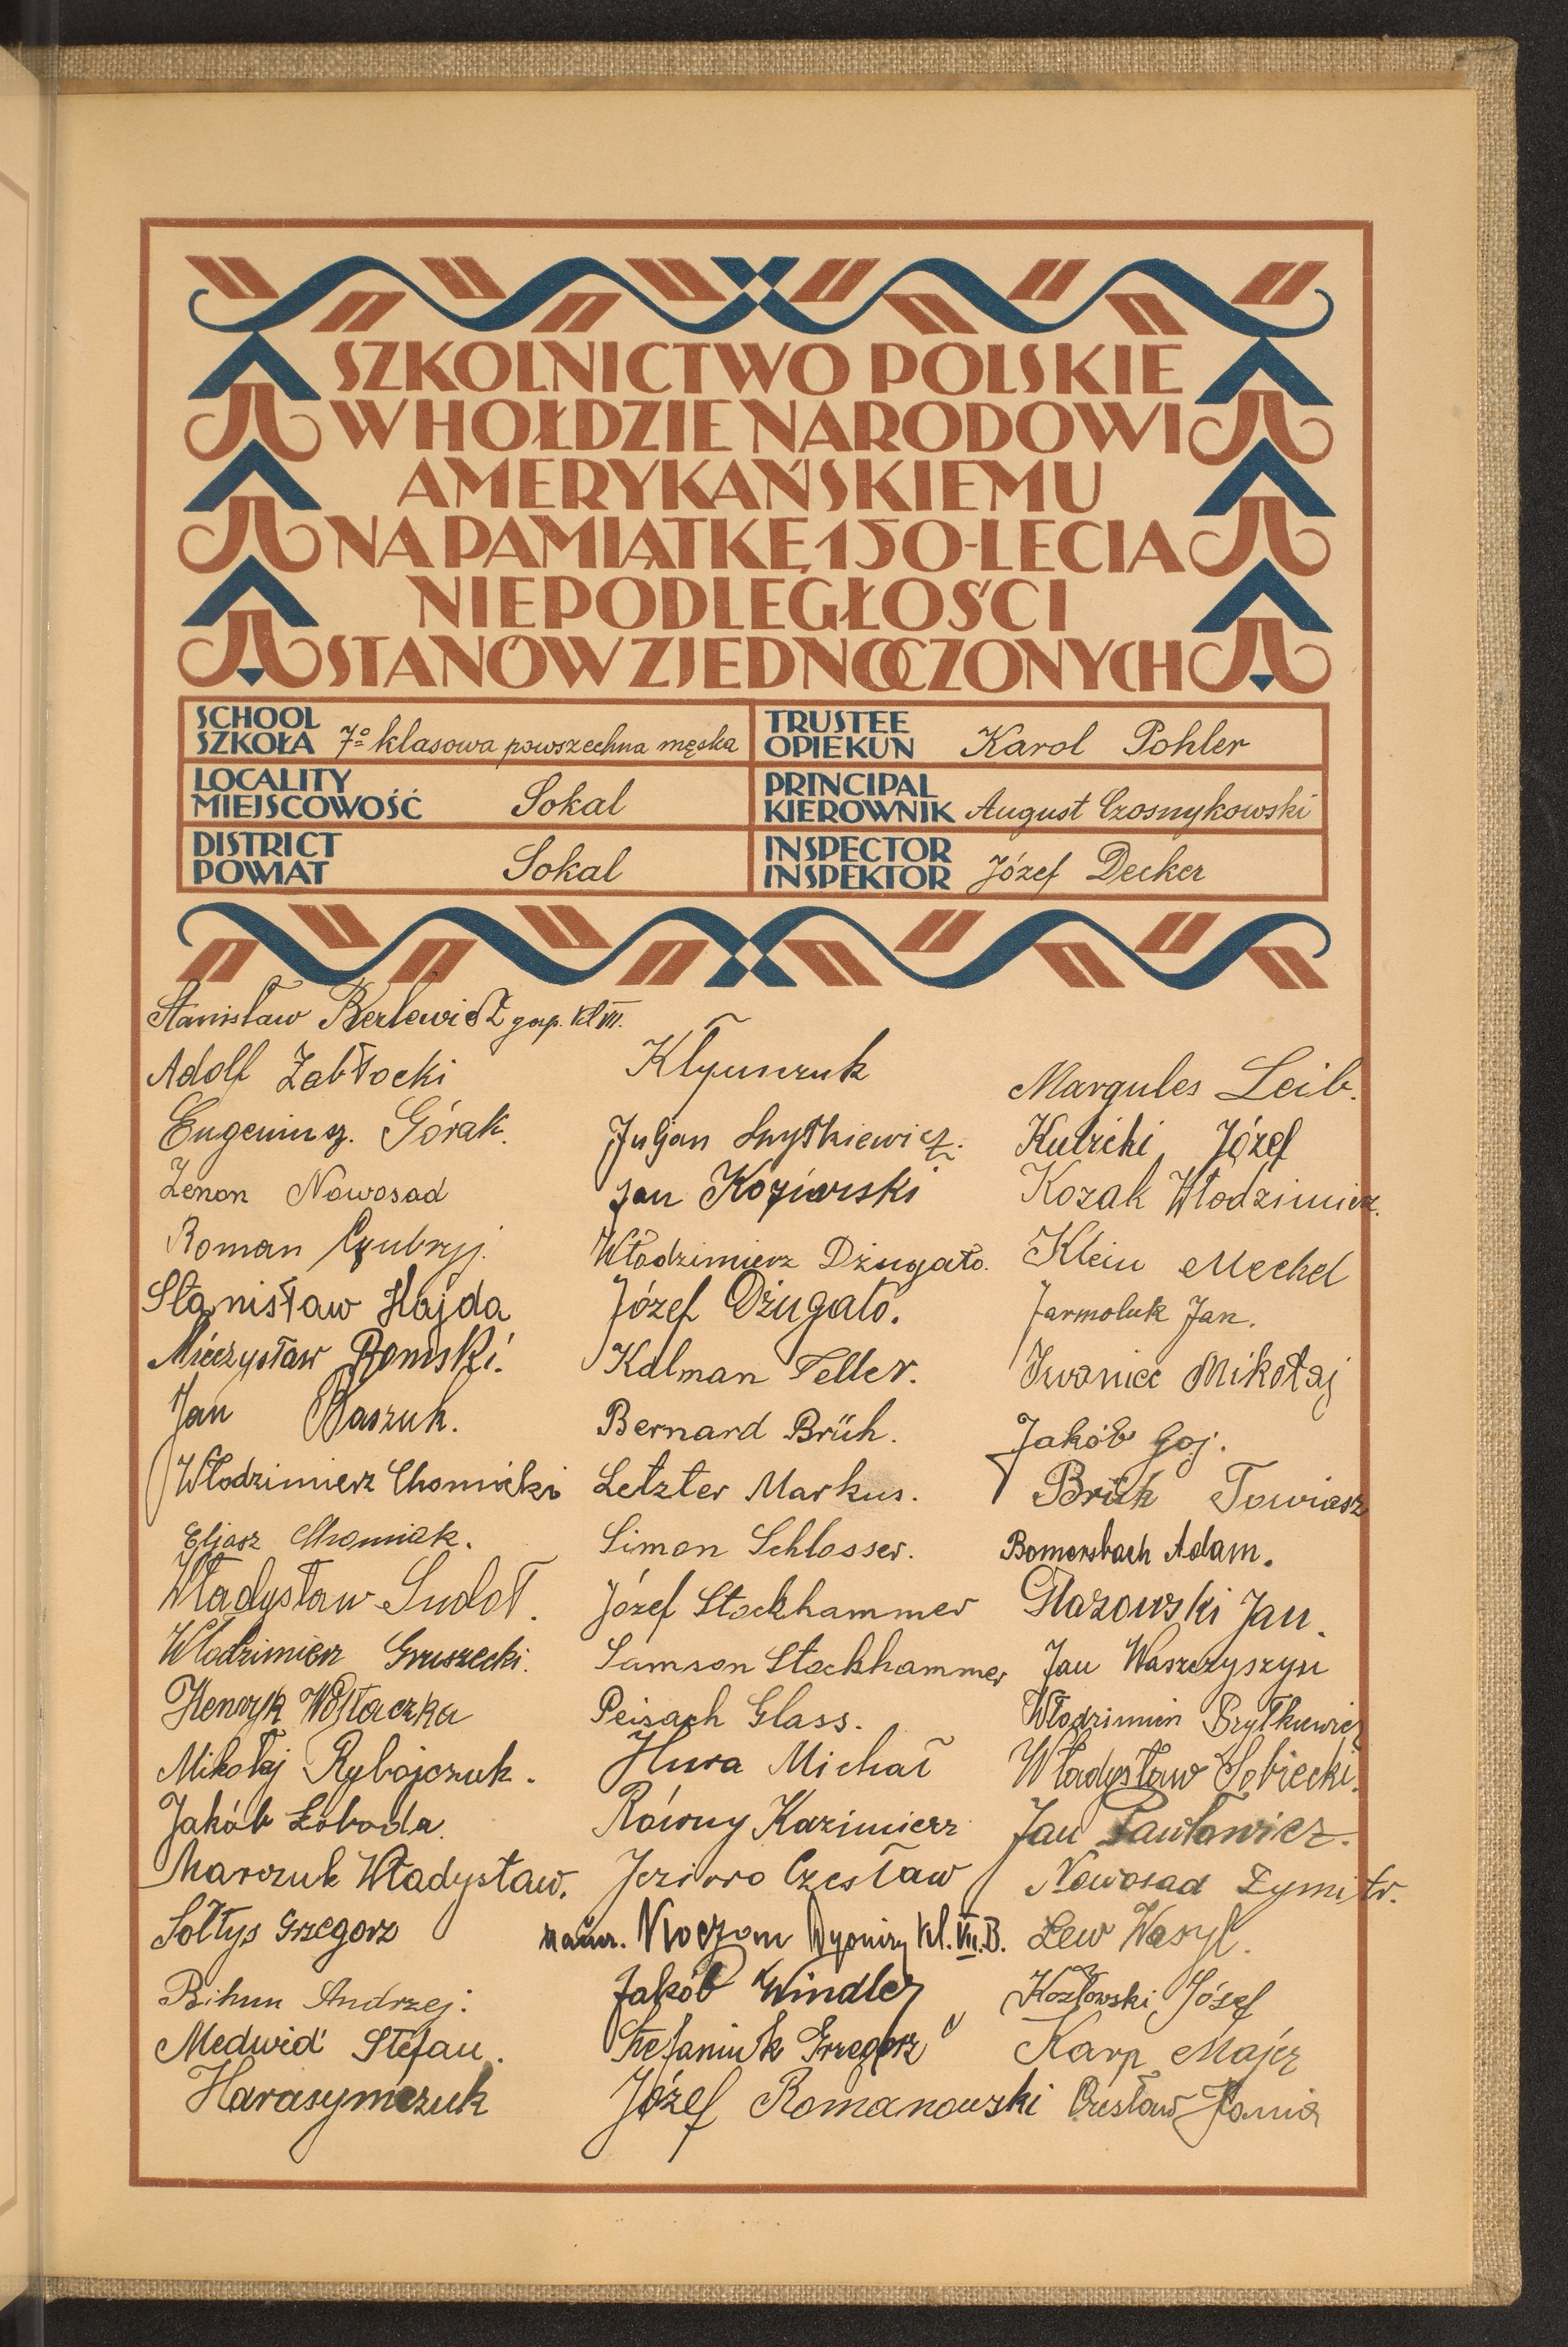 SZKOLNICTWO POLSKIE
W HOŁDZIE NARODOWI
AMERYKAŃSKIEMU
NA PAMIĄTKĘ 150-LECIA
NIEPODLEGŁOŚCI
STANÓW ZJEDNOCZONYCH
SCHOOL
SZKOŁA 7o klasowa powszechna męska
TRUSTEE
OPIEKUN Karol Pohler
LOCALITY
MIEJSCOWOŚĆ Sokal
PRINCIPAL
KIEROWNIK August Czosnykowski
DISTRICT
POWIAT Sokal
INSPECTOR
INSPEKTOR Józef Decker
Stanisław Berlewicz gosp. kl VII.
Adolf Zabłocki
Eugeniusz. Górak.
Zenon Nowosad
Roman
Stanisław Hajda
Mieczysław Bomski.
Jan Baszuk.
Włodzimierz Chomicki
Eljasz Chomiak.
Władysław Sudoł.
Włodzimierz Gruszecki.
Henryk Wojtaczka
Mikołaj Rybojczuk.
Jakób Łoboda.
Marczuk Władysław.
Sołtys Grzegorz
Bihun Andrzej.
Medwid' Stefan.
Harasymczuk
Kłymczuk
Juljan
Jan Koziarski
Włodzimierz Dżugało.
Józef Dżugało.
Kalman Teller.
Bernard Brüh.
Letzter Markus.
Simon Schlosser.
Józef Stockhammer
Samson Stockhammer
Peisach Glass.
Hura Michał
Równy Kazimierz
Jezioro Czesław
kl. VII.B.
Jakób Windler
Stefaniuk Grzegorz
Józef Romanowski
Margules Leib.
Kulzicki Józef
Kozak Włodzimierz.
Klein Mechel
Jarmoluk Jan.
Iwaniec Mikołaj
Jakób Goj.
Brüh Towiasz
Bomersbach Adam.
Głazowski Jan.
Jan Waszczyszyn
Włodzimierz
Władysław Sobiecki.
Jan Pawłowicz.
Nowosad Dymitr.
Lew Wasyl.
Kozłowski Józef
Karp Majer
Czesław Pania